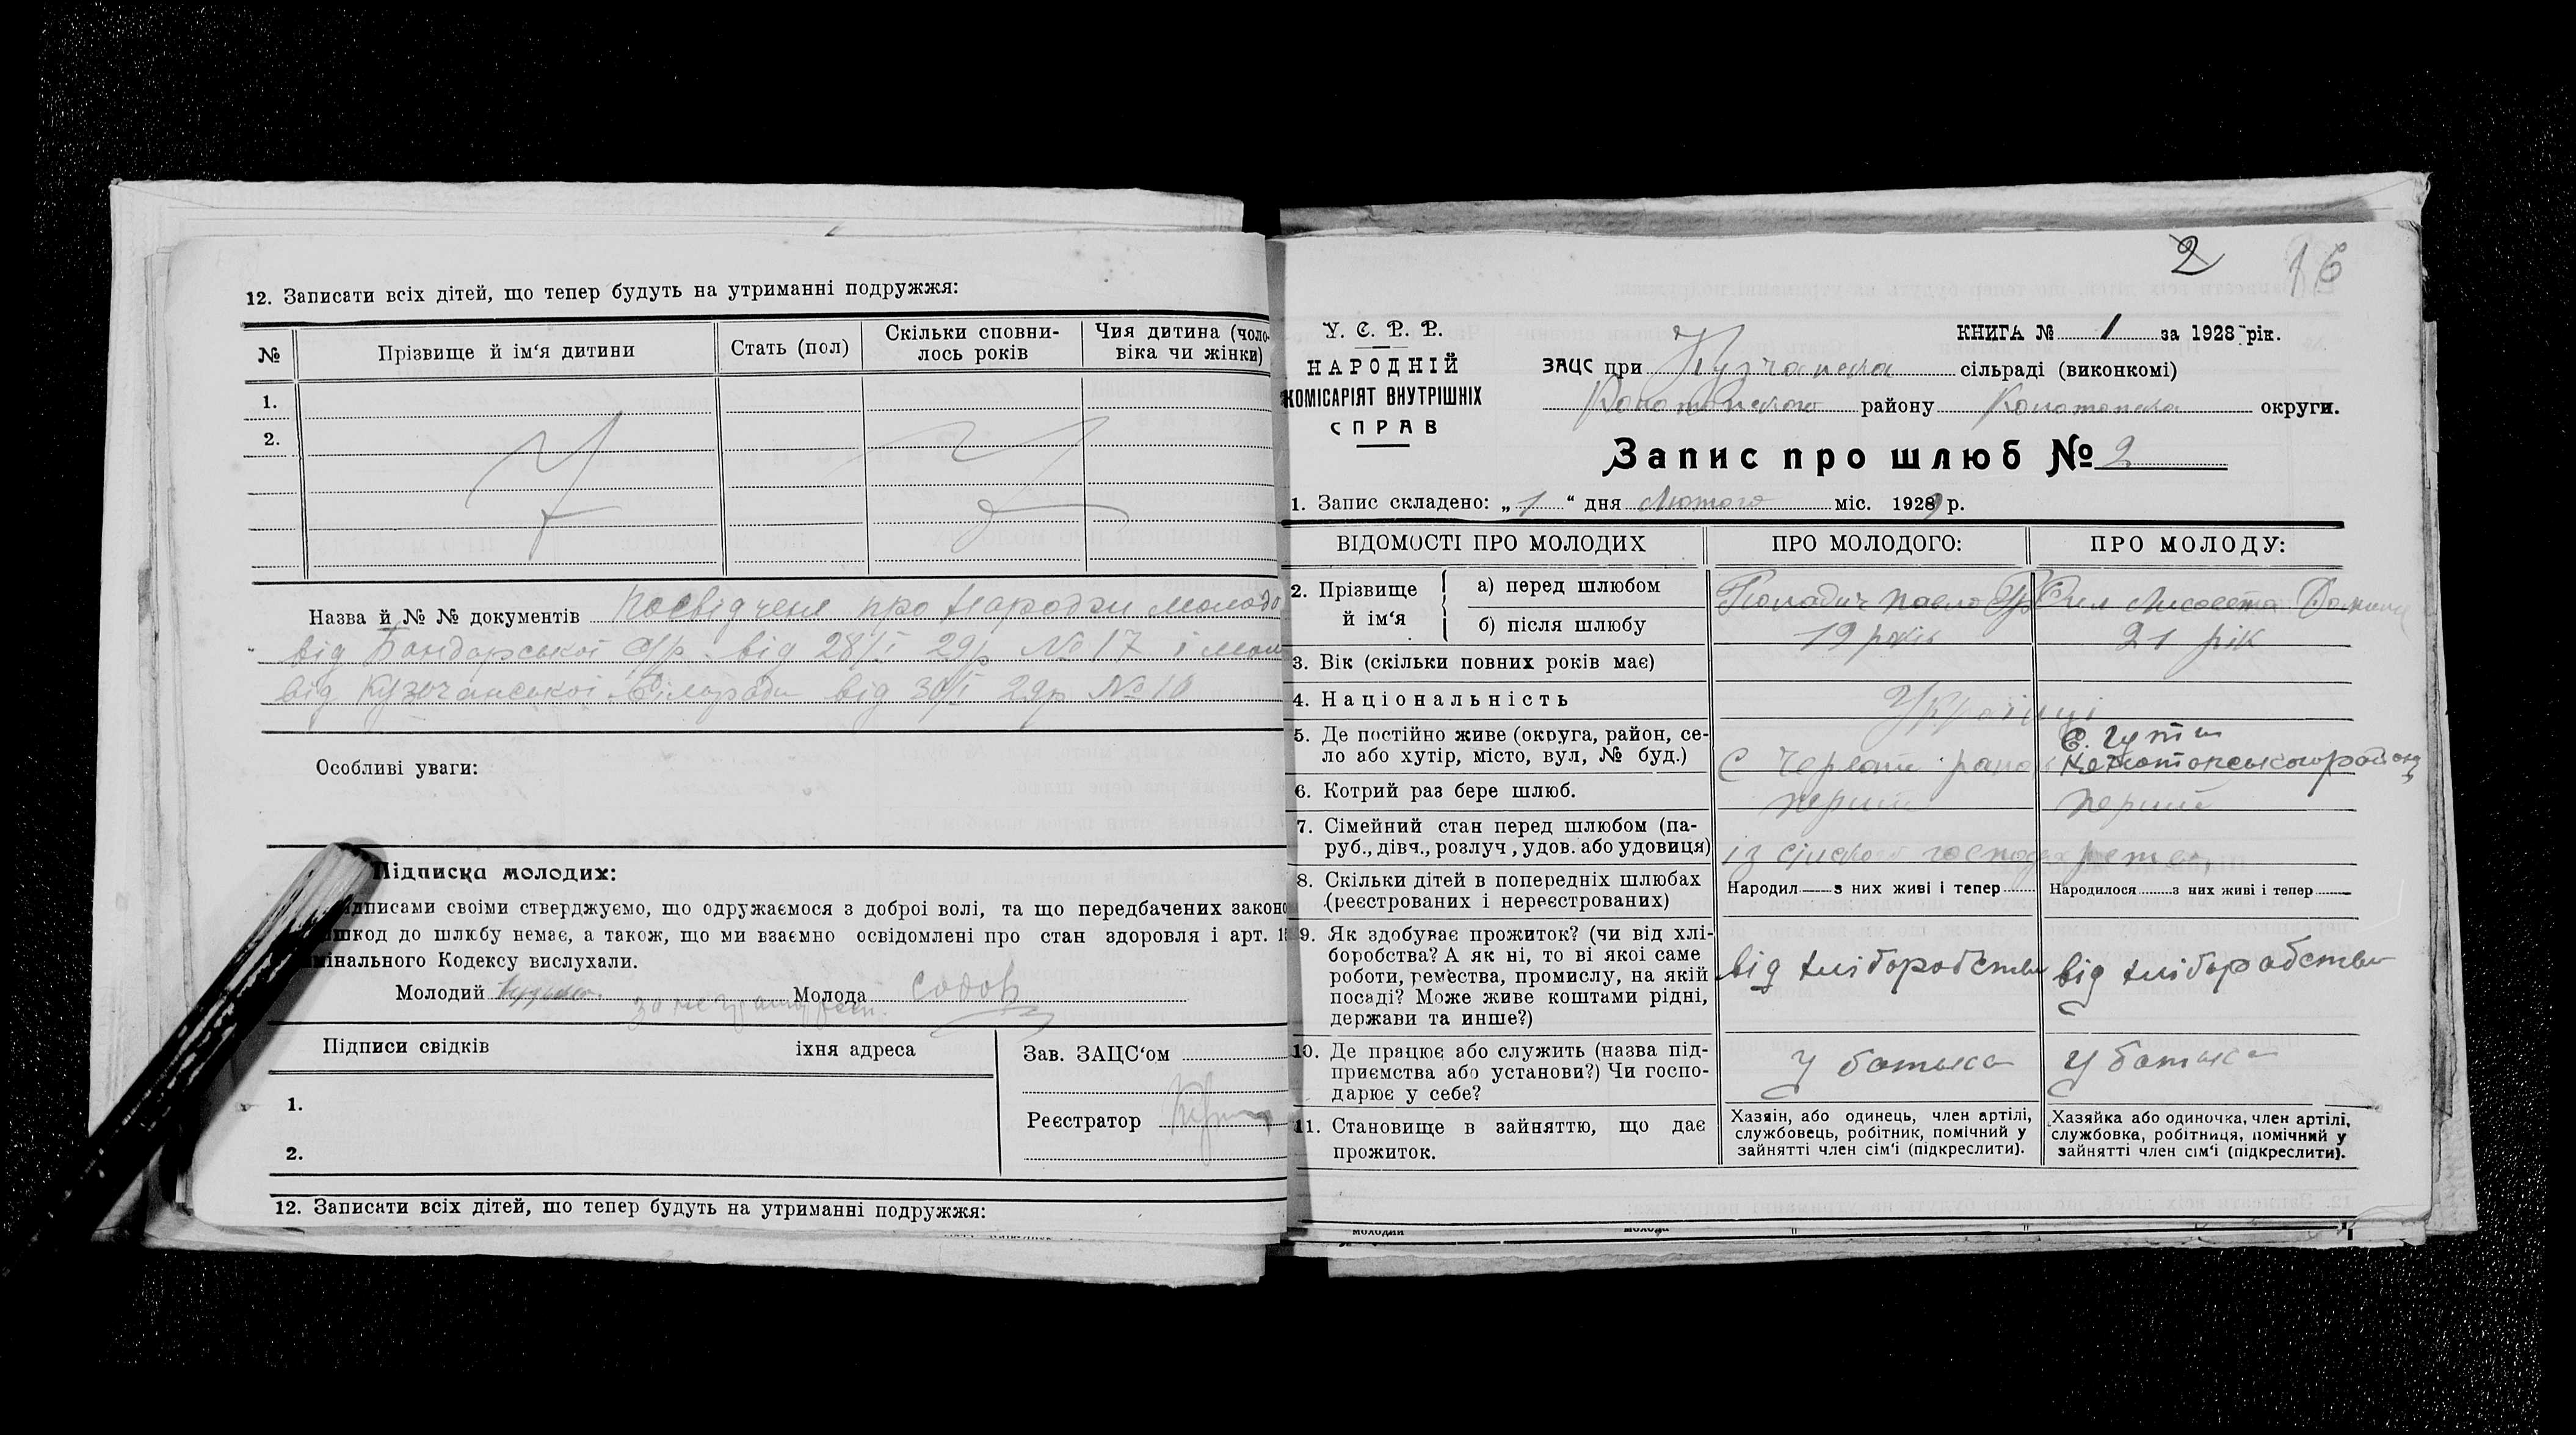 12. Записати всіх дітей, що тепер будуть на утриманні подружжя:
№
Прізвище й ім‘я дитини
Стать (пол)
Скільки сповни-
лось років
Чия дитина (чоло-
віка чи жінки)
1.
2.
Назва й № № документів Посвідченя про народжи молодо
від Бондарської с/р від 28/I 29р № 17 і мол
від Кузчанської Сілоради від 30/I 29р № 10
Особливі уваги:
Підписка молодих:
дписами своїми стверджуємо, що одружаємося з доброї волі, та що передбачених законо
шкод до шлюбу немає, а також, що ми взаємно освідомлені про стан здоровля і арт. 1
інального Кодексу вислухали.
Молодий
Молода
Підписи свідків
їхня адреса
Зав. ЗАЦС‘ом
1.
Реєстратор
2.
12. Записати всіх дітей, що тепер будуть на утриманні подружжя:
2
16
У. С. Р. Р.
НАРОДНІЙ
КОМІСАРІЯТ ВНУТРІШНІХ
СПРАВ
КНИГА № 1 за 1928 рік.
ЗАЦС при Кузчанска сільраді (виконкомі)
Конотопского району Конотопска округи.
Запис про шлюб № 2
1. Запис складено: „ 1 “ дня Лютого міс. 1929 р.
ВІДОМОСТІ ПРО МОЛОДИХ
ПРО МОЛОДОГО:
ПРО МОЛОДУ:
2. Прізвище
й ім‘я
а) перед шлюбом
б) після шлюбу
Павло
19 років
21 рік
3. Вік (скільки повних років має)
4. Національність
Українці
5. Де постійно живе (округа, район, се-
ло або хутір, місто, вул, № буд.)
С
С. Гути
Конотопського району
6. Котрий раз бере шлюб.
перший
перший
7. Сімейний стан перед шлюбом (па-
руб., дівч., розлуч, удов. або удовиця)
із сільского господарства
8. Скільки дітей в попередніх шлюбах
(реєстрованих і нереєстрованих)
Народил з них живі і тепер
Народилося з них живі і тепер
9. Як здобуває прожиток? (чи від хлі-
боробства? А як ні, то ві якої саме
роботи, ремества, промислу, на якій
посаді? Може живе коштами рідні,
держави та инше?)
від хліборобства
від хліборобства
10. Де працює або служить (назва під-
приємства або установи?) Чи госпо-
дарює у себе?
У батька
У батька
11. Становище в зайняттю, що дає
прожиток.
Хазяїн, або одинець, член артілі,
службовець, робітник, помічний у
зайнятті член сім‘ї (підкреслити).
Хазяйка або одиночка, член артілі,
службовка, робітниця, помічний у
зайнятті член сім‘ї (підкреслити).
молодий
молода